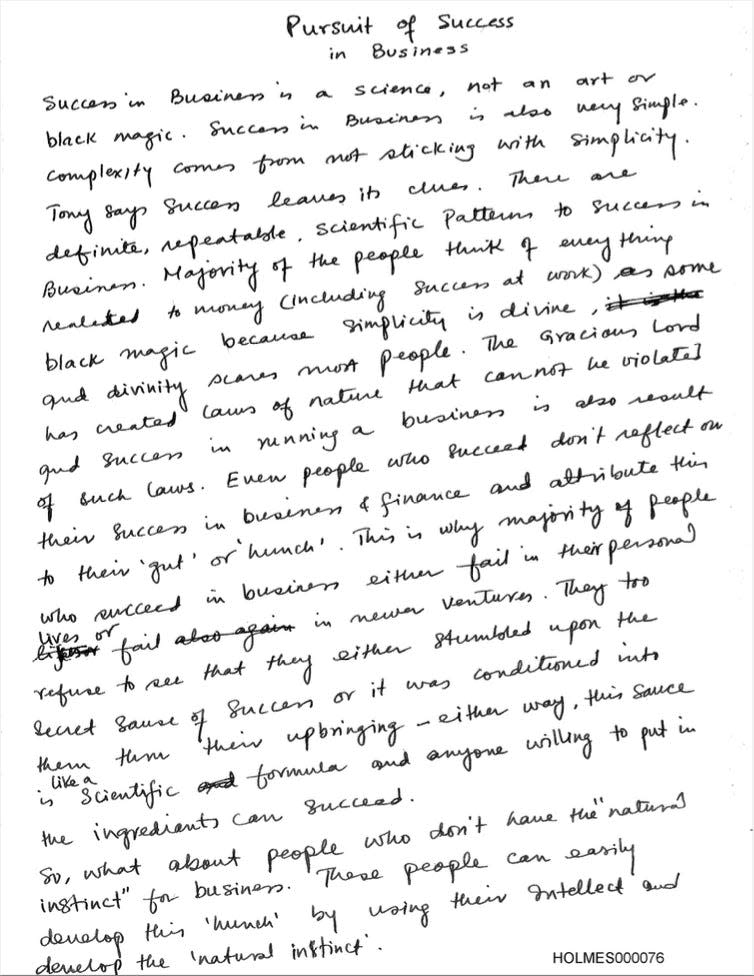 Pursuit of Success
in Business
Success in Business is a science, not an art or
black magic. Success in Business is also very simple.
complexity comes from not sticking with simplicity.
Tony says Success leaves its clues. There are
definite, repeatable, scientific patterns to success in
Business. Majority of the people think of everything
realated to money (including success at work) as some
black magic because simplicity is divine, it is the
and divinity scares most people. The Gracious Lord
has created laws of nature that can not be violated
and success in running a business is also result
of such laws. Even people who succeed don't reflect on
their success in business & finance and attribute this
to their 'gut' or 'hunch'. This is why majority of people
who succeed in business either fail in their personal
lives or
fail also again in newer ventures. They too
refuse to see that they either stumbled upon the
secret sause of success or it was conditioned into
them thru their upbringing - either way, this sauce
like a
is scientific and formula and anyone willing to put in
the ingredients can succeed.
So, what about people who don't have the "natural
instinct" for business. These people can easily
develop this 'hunch' by using their Intellect and
develop the 'natural instinct'.
HOLMES000076